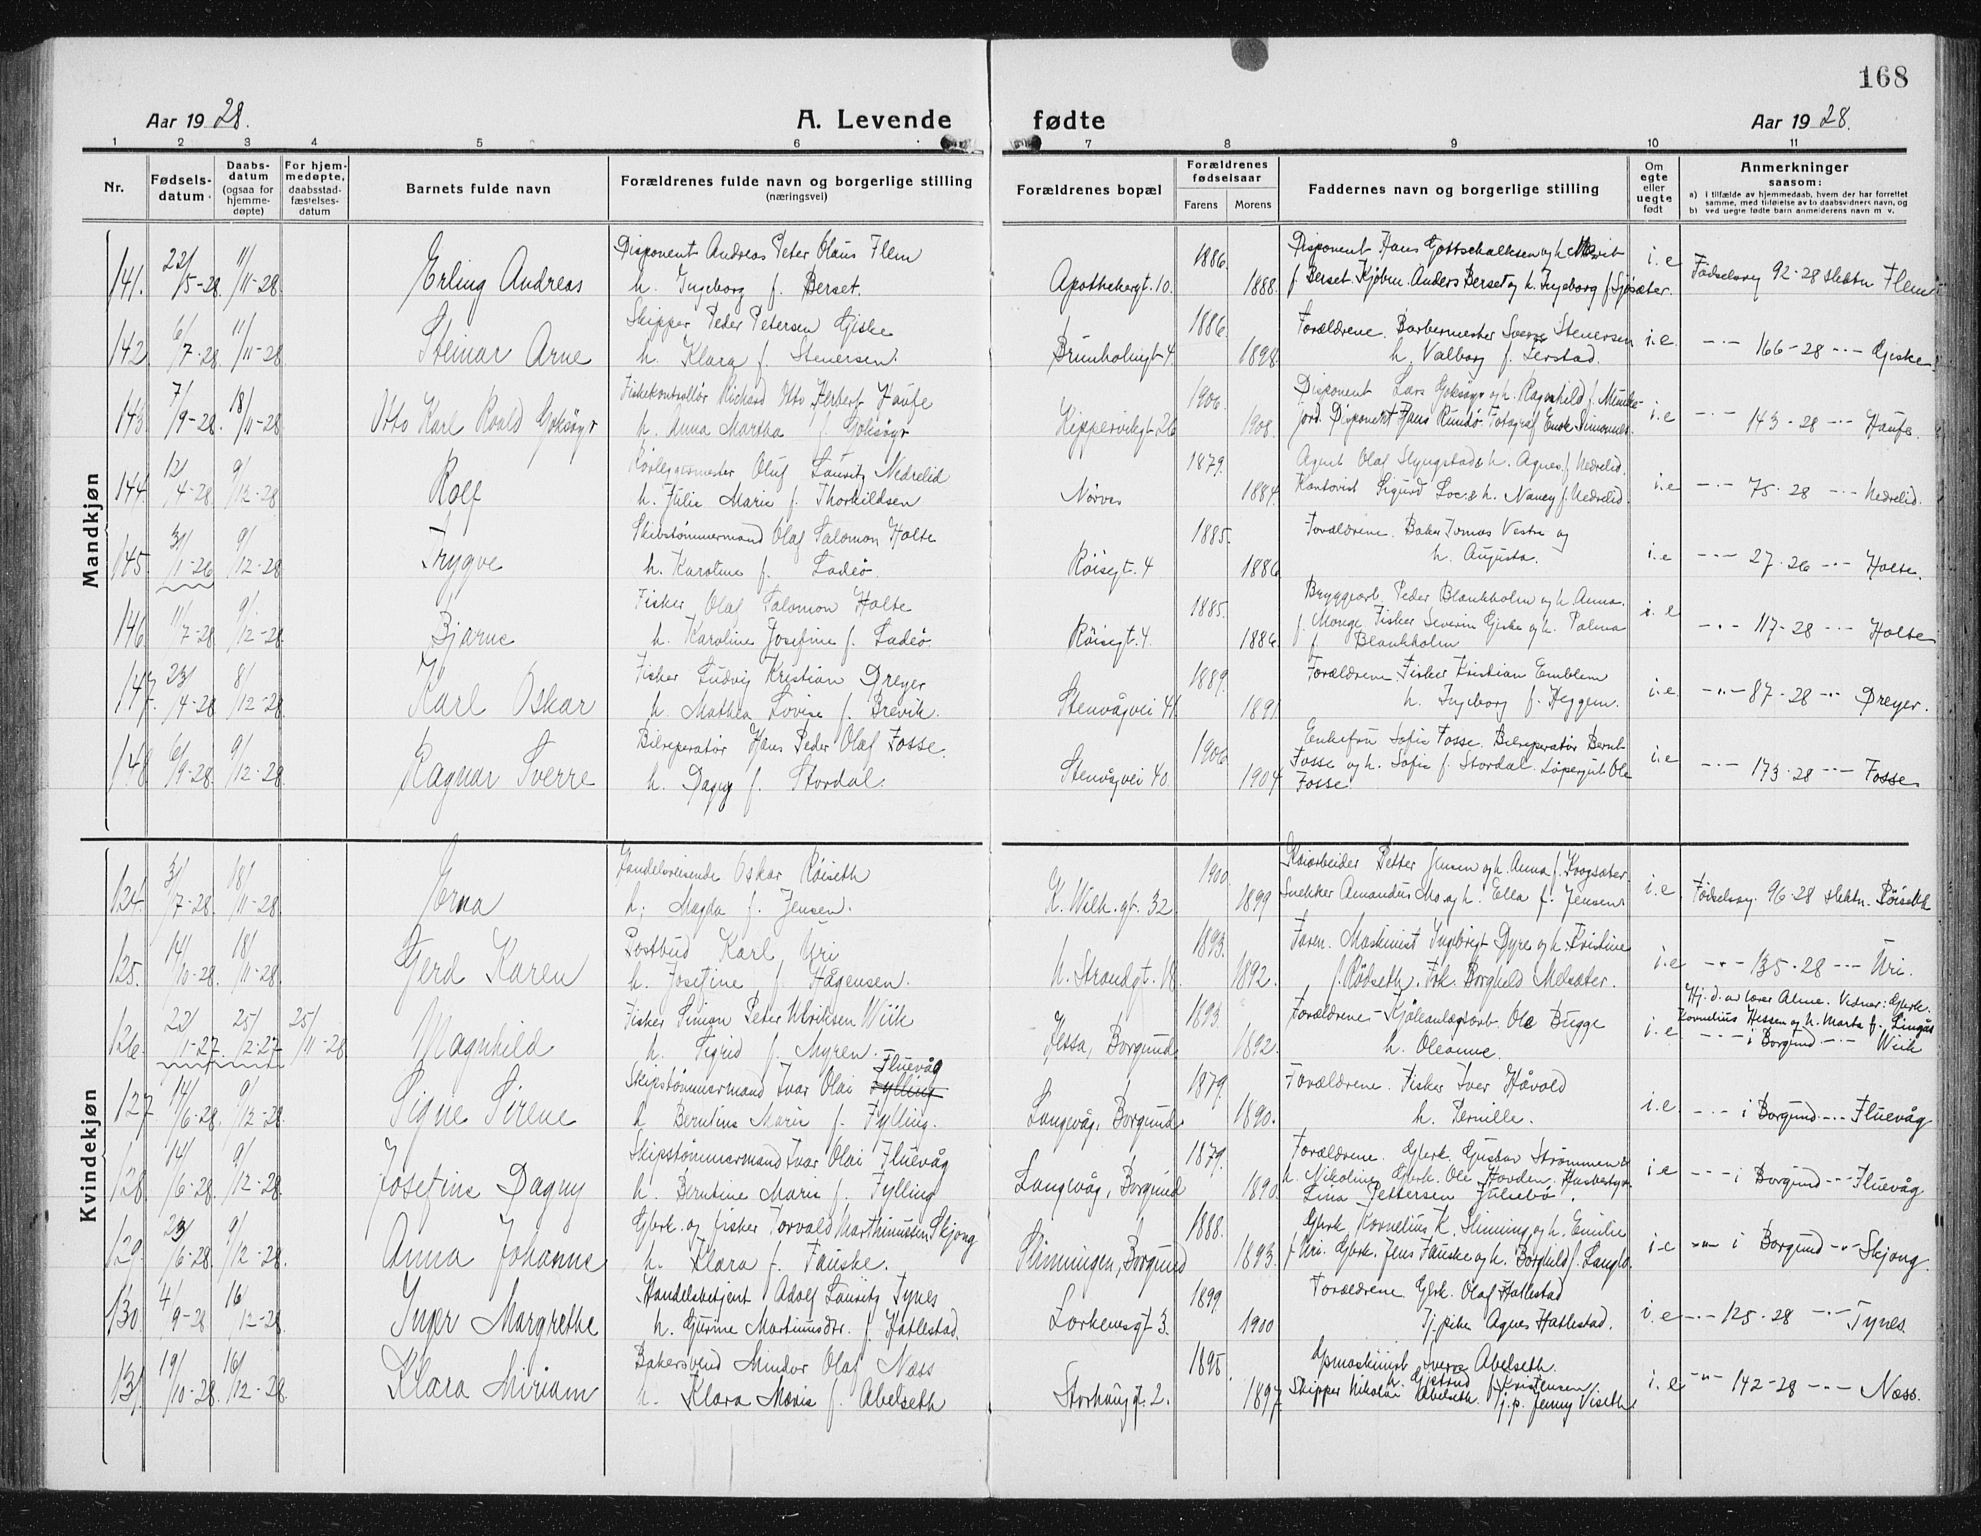 168
Aar 1928. A. Levende fødte Aar 1928.
1 2 3 4 5 6 7 8 9 10 11
Nr. Fødsels-datum Daabs-datum (ogsaa for hjemme-døpte) For hjem-medøpte, daabsstad-fæstelses-datum Barnets fulde navn Forældrenes fulde navn og borgerlige stilling (næringsvei) Forældrenes bopæl Forældrenes fødselsaar Farens Morens Faddernes navn og borgerlige stilling Om egte eller uegte født Anmerkninger saasom: a) I tilfælde av hjemmedaab, hvem der har forrettet samme, med tilføielse av to daabsvidners navn, og b) ved uegte fødte barn anmelderens navn m. v.
Mandkjøn
141. 22/5-28. 11/11-28. Erling Andreas Disponent Andreas Peter Olaus Flem
h. Ingeborg f. Berset. Apothekergt. 10. 1886. 1888. Disponent Hans Gottschalksen og h. Marit
f. Berset. Kjøbm. Anders Berset og h. Ingeborg f. Sjøsæter. i. e. Fødselsreg 92-28 Flem
142. 6/7-28. 11/11-28. Steinar Arne Skipper Peder Petersen Giske
h. Klara f. Stenersen. Brunholmgt 4. 1886. 1898. Forældrene. Barbermester Sverre Stenersen
h. Valborg f. Terstad. i. e. -"- 166-28 -"- Giske
143. 7/9-28. 18/11-28. Otto Karl Roald Goksøyr Fiskekontrollør Richard Otto Herbert Haufe
h. Anna Martha f. Goksøyr Kippervikgt 26 1906. 1908. Disponent Lars Goksøyr og h. Ragnhild f. Munke-
jord. Disponent Hans Rundø. Fotograf i. e -"- 143-28 -"- Haufe.
144. 12/4-28. 9/12-28. Rolf Rørleggermester Oluf Lauritz Nedrelid
h. Julie Marie f. Thorkildsen Nørve 1879. 1884. Agent Olaf Slyngstad & h. Agnes f. Nedrelid.
Kontorist Sigurd h. Nancy f. Nedrelid. i. e -"- 75-28 -"- Nedrelid.
145. 31/1-26 9/12-28. Trygve Skibstømmermand Olaf Salomon Holte
h. Karoline f. Ladeø. Röisegt. 4 1885. 1886 Forældrene. Baker Tomas Vestre og
h. Augusta. i. e -"- 27-26 -"- Holte.
146. 11/7-28. 9/12-28. Bjarne Fisker Olaf Salomon Holte
h. Karoline Josefine f. Ladeø. Röisegt. 4. 1885. 1886. Bryggearb. Peder Blankholm og h. Anna
f. Monge Fisker Severin Giske og h. Palma
f. Blankholm i. e -"- 117-28 -"- Holte
147. 23/4-28. 8/12-28. Karl Oskar Fisker Ludvig Kristian Dreyer
h. Mathea Lovise f. Brevik. Stenvågvei 41. 1889. 1891. Forældrene. Fisker Kristian Emblem
h. Ingeborg f. Heggem. i. e. -"- 87-28 -"- Dreyer.
148. 6/9-28. 9/12-28. Ragnar Sverre Bilreperatør Hans Peder Olaf Fosse.
h. Dagny f. Stordal. Stenvågvei 40. 1906. 1904 Enkefru Sofie Fosse. Bilreperatør Bernt
Fosse og h. Sofie f. Stordal. Løpergut Ole
Fosse. i. e -"- 173-28 -"- Fosse
Kvindekjøn
124. 31/7-28. 18/11-28. Erna Handelsreisende Oskar Röiseth
h. Magda f. Jensen. K. Wilh. gt. 32. 1900 1899 Kaiarbeider Petter Jensen og h. Anna f. Krogsæter.
Snekker Amandus Mo og h. Ella f. Jensen. i. e Fødselsreg. 96-28 Röiseth
125. 14/10-28. 18/11-28. Gerd Karen Postbud Karl Uri
h. Josefine f. Hagensen. N. Strandgt. 18. 1893. 1892. Faren. Maskinist Ingbrigt Dyre og h. Kristine
f. Rödseth. Frk. Borghild Melsæter. i. e -"- 135-28 -"- Uri.
126. 22/1-27. 25/2-27 25/11-28 Magnhild Fisker Simon Peter Ulriksen Wiik
h. Sigrid f. Myren. Hessa, Borgund. 1893. 1892. Forældrene - Kjøleanlægsarb. Ole Bugge
h. Oleanne. i. e Hj. d. av lærer Alme. Vidner: Gbrk.
Kornelius Hessen og h. Marta f. Lingås
-"- i Borgund -"- Wiik
127. 14/6-28. 9/12-28. Signe Sirene Skipstømmermand Ivar Olai Fylling Fluevåg
h. Berntine Marie f. Fylling. Langevåg, Borgund 1879. 1890. Forældrene. Fisker Iver Håvold
h. Pernille. i. e. -"- i Borgund -"- Fluevåg
128. 14/6-28. 9/12-28. Josefine Dagny Skipstømmermand Ivar Olai Fluevåg
h. Berntine Marie f. Fylling Langevåg, Borgund 1879. 1890 Forældrene. Gbrk. Gustav Strømmen &
h. Nikoline. Gbrk. Ole Hovden. Husbestyr.
Lina Pettersen Julsebø. i. e -"- i Borgund -"- Fluevåg
129. 23/6-28. 9/12-28. Anna Johanne Gbrk. og fisker Torvald Marthinussen Skjong
h. Klara f. Fauske. Slinningen, Borgund 1888. 1893. Gbrk. Kornelius K. Slinning og h. Emilie
f. Uri. Gbrk. Jens Fauske og h. Borghild f. Langlo. i. e -"- i Borgund -"- Skjong.
130. 4/9-28 16/12-28. Inger Margrethe Handelsbetjent Adolf Lauritz Tynes
h. Gurine Martinusdtr. f. Hatlestad. Lorkenesgt 3. 1899. 1900 Forældrene Gbrk. Olaf Hatlestad
Tj. pike Agnes Hatlestad. i. e -"- 125-28 -"- Tynes.
131. 19/10-28. 16/12-28. Klara Miriam Bakersvend Mindor Olaf Næss
h. Klara Marie f. Abelseth Storhaugt. 2. 1895. 1897 Sverre Abelseth.
h. Gjetrud f. Kristensen,
Skipper Nikolai Abelseth. Tj. p. Jenny Viseth. i. e -"- 142-28 -"- Næss.